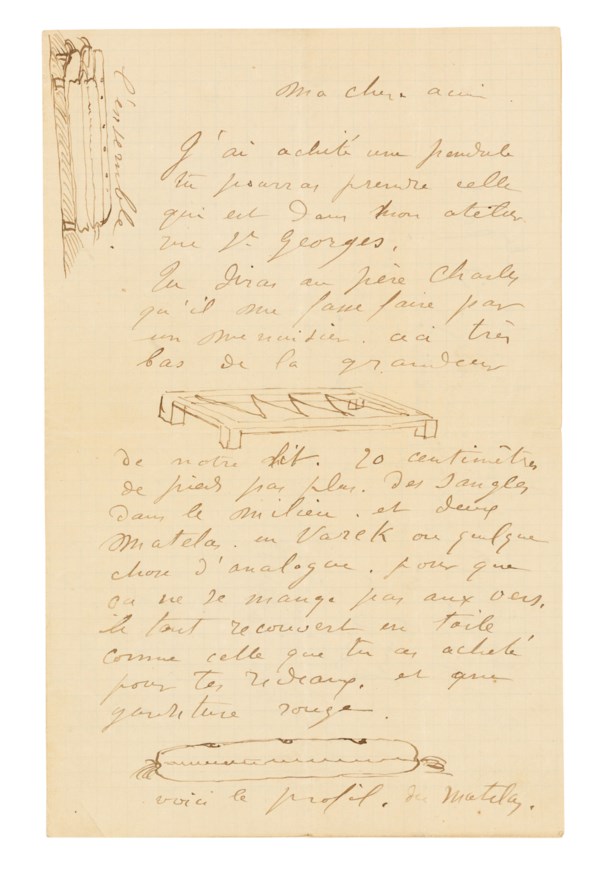 l'ensemble.
Ma chere amie
J'ai acheté une pendule
tu pourras prendre celle
qui est dans mon atelier
rue St Georges.
Tu diras au père Charles
qu'il me fasse faire par
un menuisier. ceci très
bas de la grandeur
de notre lit. 20 centimètres
de pieds pas plus. des sangles
dans le milieu. et deux
Matelas. en Vareck ou quelque
chose d'analogue. pour que
ça ne se mange pas aux vers.
le tout recouvert en toile
comme celle que tu as acheté
pour tes rideaux. et une
garniture rouge.
voici le profil. du Matelas.